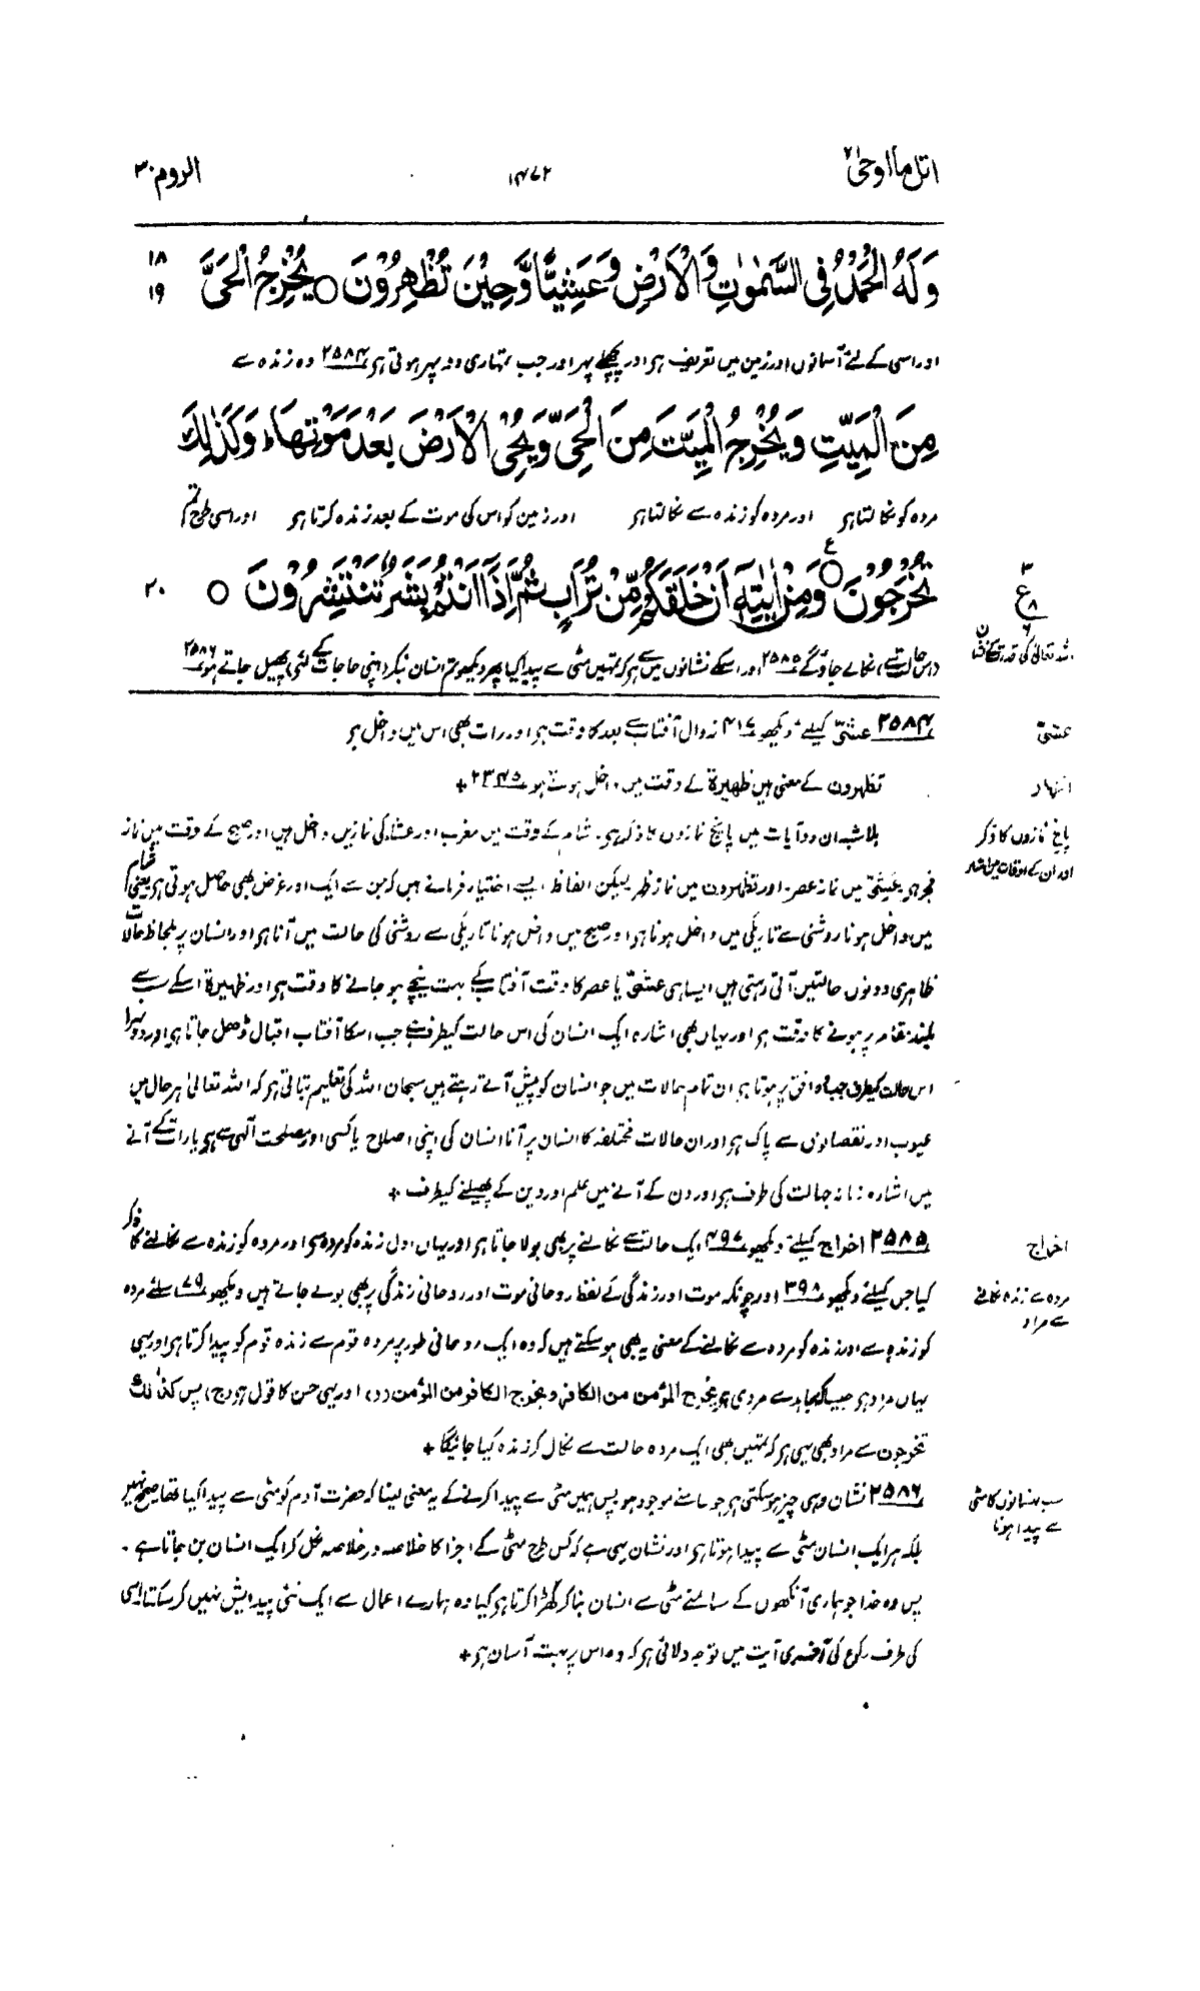 اتل ما اوحی ۲۱
۱۴۷۲
الروم ۳۰
وَلَهُ الْحَمْدُ فِی السَّمٰوٰتِ وَالْاَرْضِ وَعَشِیًّا وَّحِیْنَ تُظْهِرُوْنَ ○ یُخْرِجُ الْحَیَّ
۱۸
۱۹
اور اسی کے لئے آسمانوں اور زمین میں تعریف ہو اور پچھلے پہر اور جب تمہاری دوپہر ہوتی ہو ۲۵۸۴ وہ زندہ سے
مِنَ الْمَیِّتِ وَیُخْرِجُ الْمَیِّتَ مِنَ الْحَیِّ وَیُحْیِ الْاَرْضَ بَعْدَ مَوْتِهَا وَكَذٰلِكَ
مردہ کو نکالتا ہو اور مردہ کو زندہ سے نکالتا ہو اور زمین کو اس کی موت کے بعد زندہ کرتا ہو اور اسی طرح تم
تُخْرَجُوْنَ ○ع وَمِنْ اٰیٰتِهٖۤ اَنْ خَلَقَكُمْ مِّنْ تُرَابٍ ثُمَّ اِذَاۤ اَنْتُمْ بَشَرٌ تَنْتَشِرُوْنَ ○
۲۰
۳
ع
۸
۶
(اس حالت سے) نکالے جاؤ گے ۲۵۸۵ اور اسکے نشانوں میں سے ہو کہ تمہیں مٹی سے پیدا کیا پھر دیکھو تم انسان بنکر (اپنی حاجات کے لئے) پھیل جاتے ہو ۲۵۸۶
اللہ تعالیٰ کی قدرت کے نشان
۲۵۸۴ عشیّ کیلئے دیکھو ۴۱۷ زوال آفتاب سے بعد کا وقت ہو اور رات بھی اس میں داخل ہو
عشیّ
تظہرون کے معنی ہیں ظهیرة کے وقت میں داخل ہوتے ہو ۲۳۴۵ +
اظہار
بلاشبہ ان دو آیات میں پانچ نمازوں کا ذکر ہو۔ شام کے وقت میں مغرب اور عشاء کی نمازیں داخل ہیں اور صبح کے وقت میں نماز
پانچ نمازوں کا ذکر
اور ان کے اوقات میں اشارہ
فجر ہو عَشِیّ میں نماز عصر۔ اور تظہرون میں نماز ظہر لیکن الفاظ ایسے اختیار فرمائے ہیں کہ جن سے ایک اور غرض بھی حاصل ہوتی ہو یعنی شام
میں داخل ہونا روشنی سے تاریکی میں داخل ہونا ہو اور صبح میں داخل ہونا تاریکی سے روشنی کی حالت میں آنا ہو اور انسان پر بلحاظ حالات
ظاہری دونوں حالتیں آتی رہتی ہیں ایسا ہی عشیّ یا عصر کا وقت آفتاب کے بہت نیچے ہو جانے کا وقت ہو اور ظہیرة اسکے سب سے
بلند مقام پر ہونے کا وقت ہو اور یہاں بھی اشارہ ایک انسان کی اس حالت کیطرف ہے جب اسکا آفتاب اقبال ڈھل جاتا ہو اور دوسرا
اس حالت کیطرف جب وہ افق پر ہوتا ہو ان تمام حالات میں جو انسان کو پیش آتے رہتے ہیں سبحان اللہ کی تعلیم بتاتی ہو کہ اللہ تعالیٰ ہر حال میں
عیوب اور نقصانوں سے پاک ہو اور ان حالات مختلفہ کا انسان پر آنا انسان کی اپنی اصلاح یا کسی اور مصلحت الٰہی سے ہو یا رات کے آنے
میں اشارہ زمانہ جہالت کی طرف ہو اور دن کے آنے میں علم اور دین کے پھیلنے کیطرف +
۲۵۸۵ اخراج کیلئے دیکھو ۴۹۷ ایک حالت سے نکالنے پر بھی بولا جاتا ہو اور یہاں اول زندہ کو مردہ سے اور مردہ کو زندہ سے نکالنے کا ذکر
اخراج
کیا جس کیلئے دیکھو ۳۹۸ اور چونکہ موت اور زندگی کے لفظ روحانی موت اور روحانی زندگی پر بھی بولے جاتے ہیں دیکھو ۷۹ اسلئے مردہ
مردہ سے زندہ نکالنے
سے مراد
کو زندہ سے اور زندہ کو مردہ سے نکالنے کے معنی یہ بھی ہو سکتے ہیں کہ وہ ایک روحانی طور پر مردہ قوم سے زندہ قوم کو پیدا کرتا ہو اور یہی
یہاں مراد ہو جیسا کہ مجاہد سے مروی ہو یخرج المؤمن من الکافر و یخرج الکافر من المؤمن (د) اور یہی حسن کا قول ہو (ج) پس کذٰلک
تخرجون سے مراد بھی یہی ہو کہ تمہیں بھی ایک مردہ حالت سے نکال کر زندہ کیا جائیگا +
۲۵۸۶ نشان وہی چیز ہو سکتی ہو جو سامنے موجود ہو پس ہمیں مٹی سے پیدا کرنے کے یہ معنی لینا کہ حضرت آدم کو مٹی سے پیدا کیا تھا صحیح نہیں
سب انسانوں کا مٹی
سے پیدا ہونا
بلکہ ہر ایک انسان مٹی سے پیدا ہوتا ہو اور نشان یہی ہے کہ کس طرح مٹی کے اجزا کا خلاصہ در خلاصہ نکل کر ایک انسان بن جاتا ہے۔
پس وہ خدا جو ہماری آنکھوں کے سامنے مٹی سے انسان بنا کر کھڑا کرتا ہو کیا وہ ہمارے اعمال سے ایک نئی پیدائش نہیں کر سکتا اسی
کی طرف رکوع کی آخری آیت میں توجہ دلائی ہو کہ وہ اس پر بہت آسان ہو +